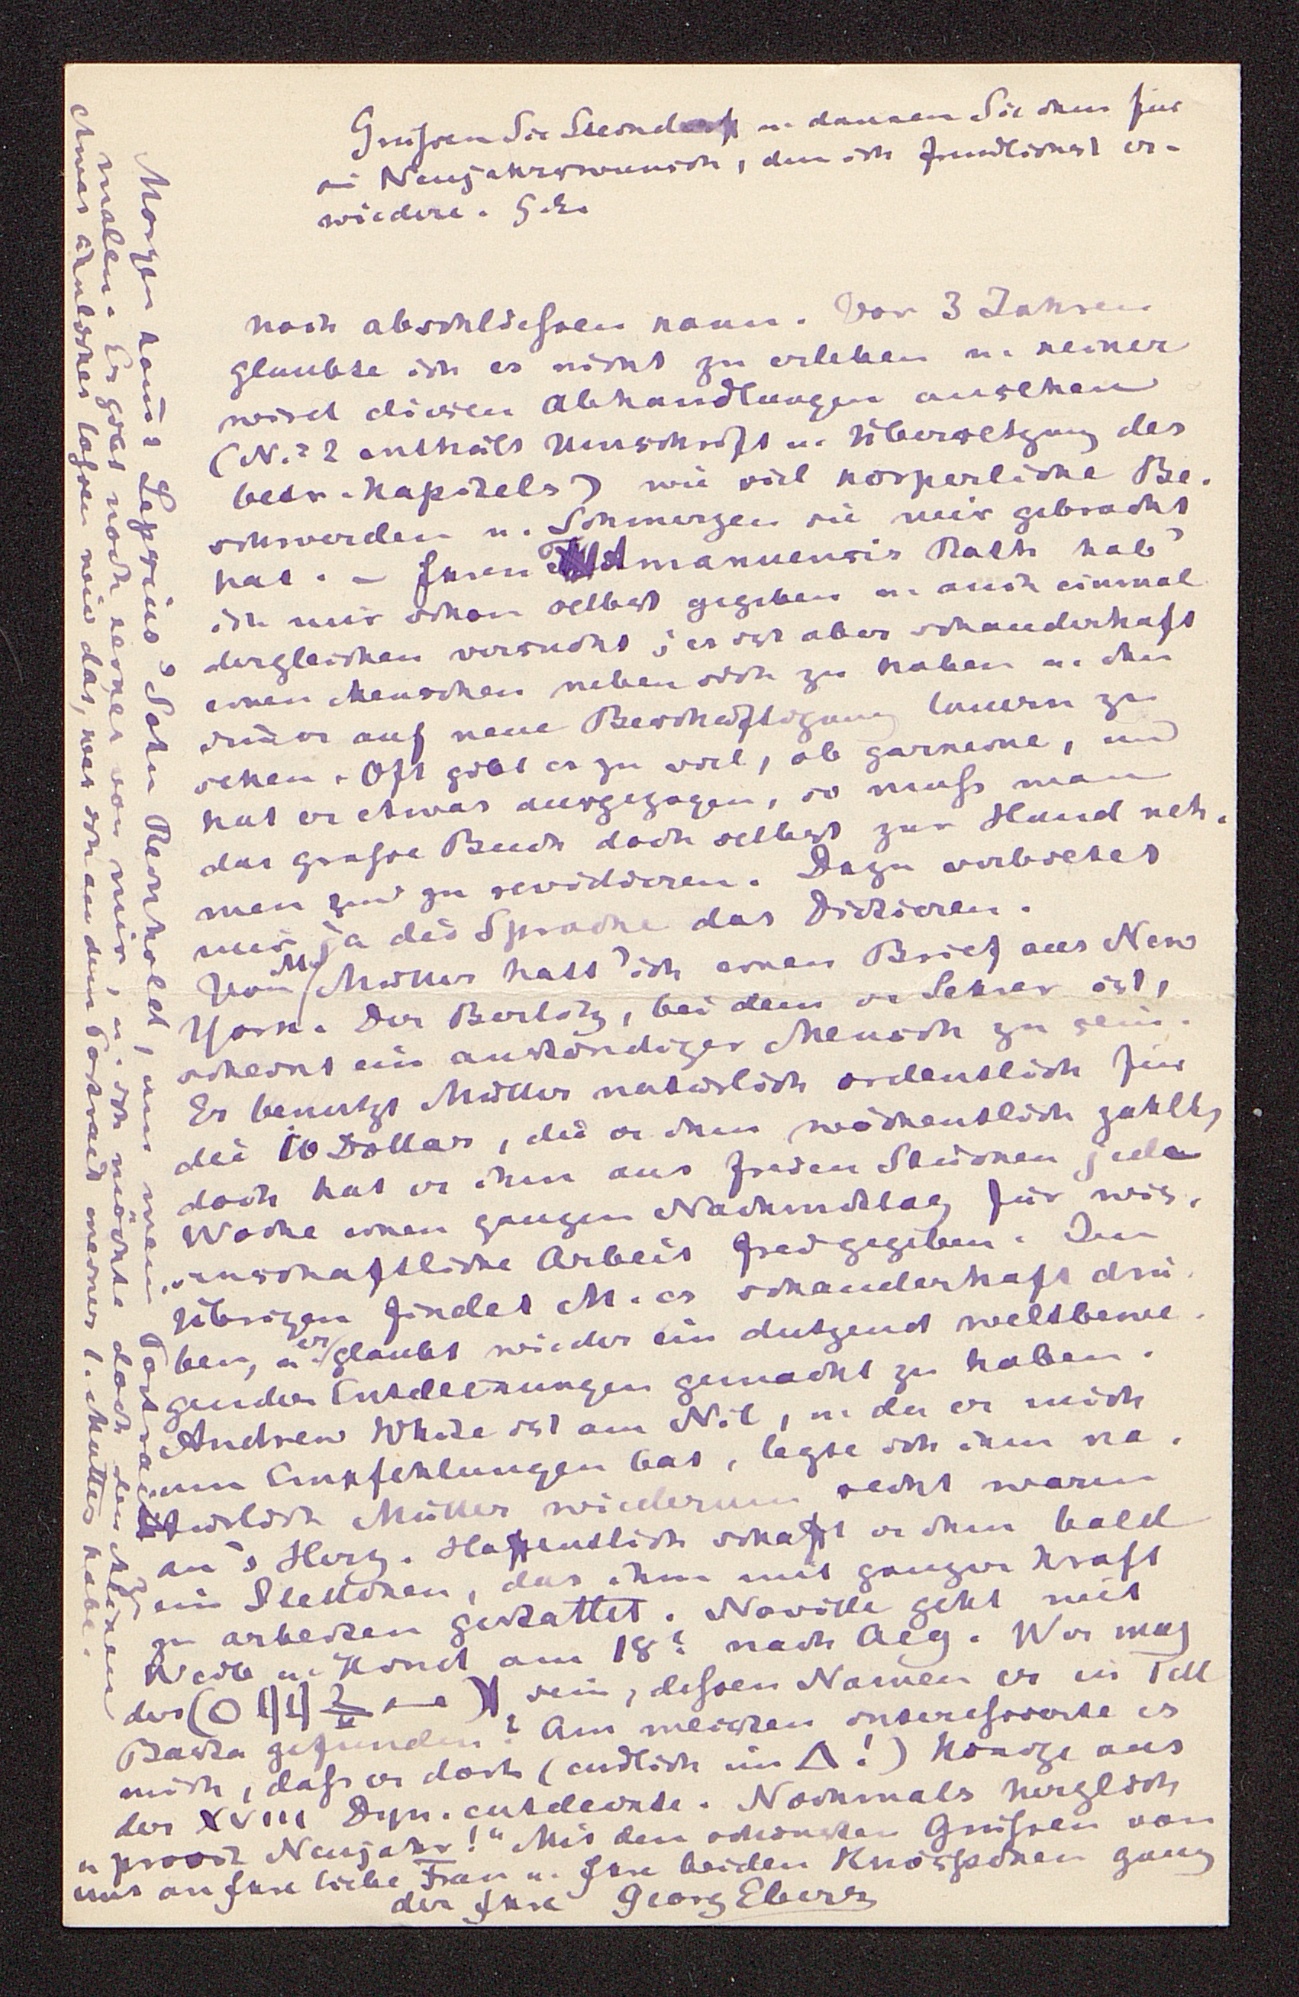 Grüßen Sie Steindorff u. danken Sie ihm für
s. Neujahrswunsch, den ich freundlichst er-
wiedere. G. E.
noch abschließen kann. Vor 3 Jahren
glaubte ich es nicht zu erleben u. keiner
wird diesen Abhandlungen ansehen
(N.º 2 enthält Umschrift u. Übersetzung des
betr. Kapitels) wie viel körperliche Be-
schwerden u. Schmerzen sie mir gebracht
hat. – Ihren Amanuensis Rath hab'
ich mir schon selbst gegeben u. auch einmal
dergleichen versucht; es ist aber schauderhaft
einen Menschen neben sich zu haben u. ihn
immer auf neue Beschäftigung lauern zu
sehen. Oft gibt es zu viel, oft garkeine, und
hat er etwas ausgezogen, so muß man
das große Buch doch selbst zur Hand neh-
men zu revidieren. Dazu verbietet
mir ja die Sprache das Dictieren.
Von M. Müller hatt' ich einen Brief aus New
York. Der Berlitz, bei dem er Lehrer ist,
scheint ein anständiger Mensch zu sein.
Er benutzt Müller natürlich ordentlich für
die 10 Dollar, die er ihm wöchentlich zahlt,
doch hat er ihm aus freien Stücken jede
Woche einen ganzen Nachmittag für wis-
senschaftliche Arbeit freigegeben. Im
Übrigen findet M. es schauderhaft drü-
ben, u. er glaubt wieder ein dutzend weltbewe-
gender Entdeckungen gemacht zu haben.
Andrew White ist am Nil, u. da er mich
um Empfehlungen bat, legte ich ihm na-
türlich Müller wiederum recht warm
an's Herz. Hoffentlich schafft er ihm bald
ein Stellchen, das ihm mit ganzer Kraft
zu arbeiten gestattet. Naville geht mit
Weib u. Kind am 18t nach Aeg. Wer mag
der ( ) sein, deßen Namen er in Tell
Basta gefunden? Am meisten interessierte es
mich, daß er dort (endlich im Δ!) Könige aus
der XVIII Dyn. entdeckte. Nochmals herzlich
„prosit Neujahr!“ Mit den schönsten Grüßen von
uns an Ihre liebe Frau u. Ihre beiden Knöspchen ganz
der Ihre Georg Ebers
Morgen kommt Lepsius' Sohn Reinhold, um mein Portrait
malen. Es gibt noch keines von mir, u. ich möchte doch den Meinen
etwas ähnliches laßen wie das, was ich an dem Portrait meiner l. Mutter habe.